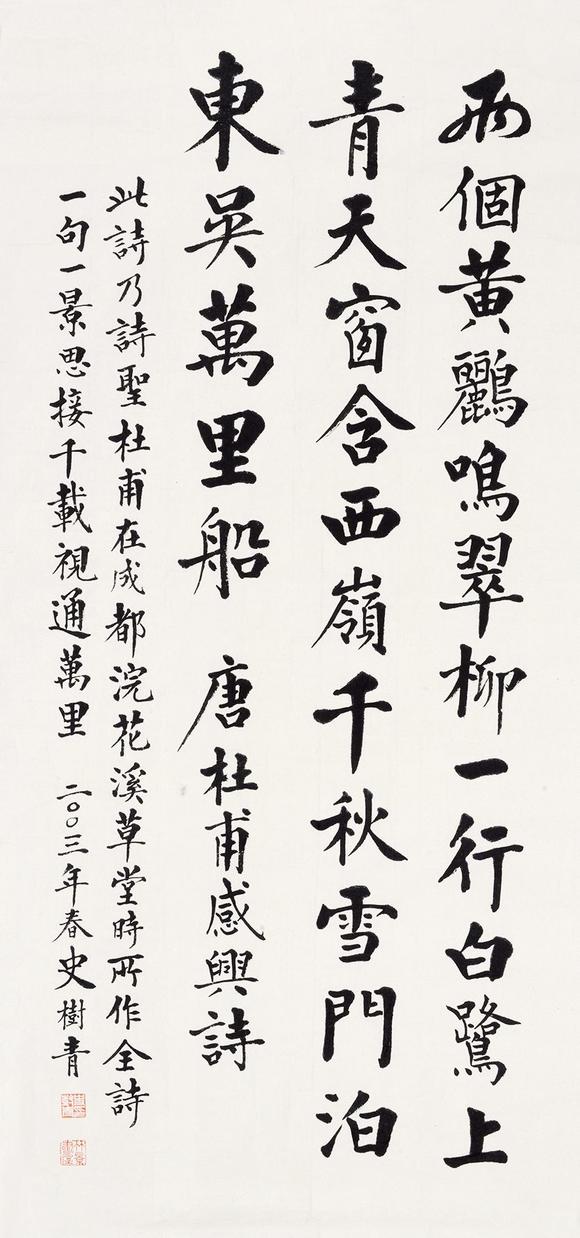 两個黄鸝鳴翠柳一行白鷺上
青天窗含西嶺千秋雪門泊
東吳萬里船 唐杜甫感興詩
此詩乃詩聖杜甫在成都浣花溪草堂時所作全詩
一句一景思接千載視通萬里 二〇〇三年春史樹青